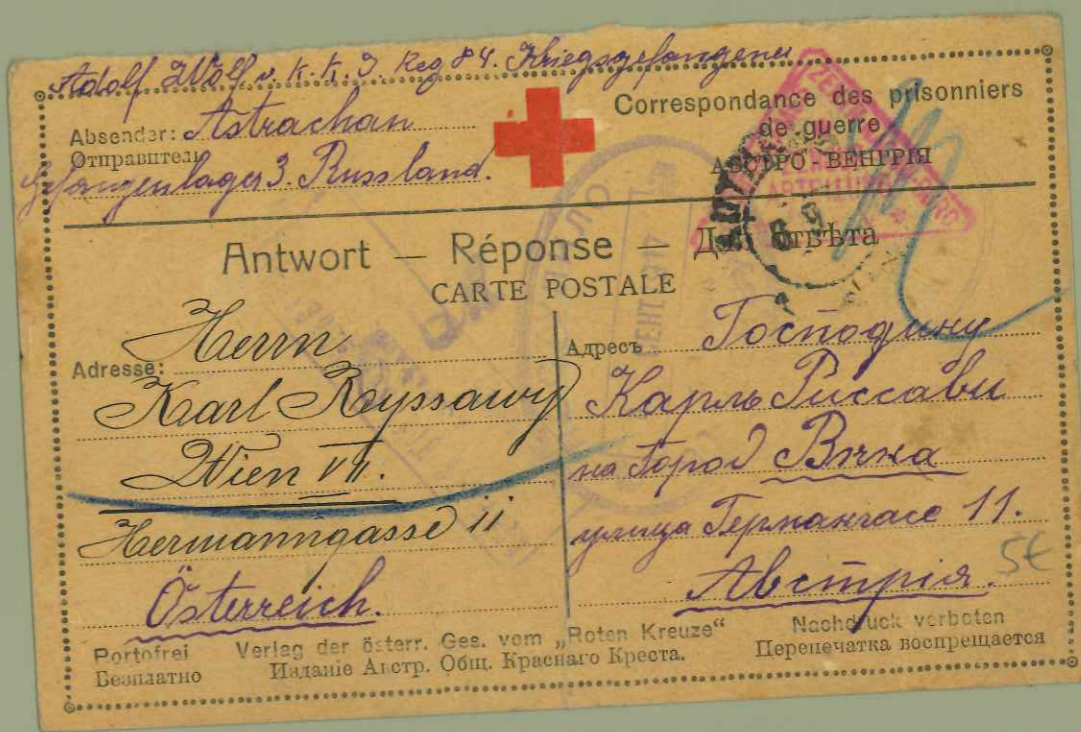 Adolf Wolf v. k. k. I. Reg 84. Kriegsgefangener
Absender: Astrachan
Отправитель
Gefangenlager 3. Russland.
Correspondance des prisonniers
de guerre
АВСТРО-ВЕНГРІЯ
Antwort — Réponse — Для отвѣта
CARTE POSTALE
Adresse: Herrn
Karl Reyssawy
Wien VII.
Hermanngasse 11
Österreich.
Адресъ Господину
Карлъ Риссави
на Город Вѣна
улица Германгассе 11.
Австрія.
5€
Portofrei
Безплатно
Verlag der österr. Ges. vom „Roten Kreuze“
Изданіе Австр. Общ. Краснаго Креста.
Nachdruck verboten
Перепечатка воспрещается